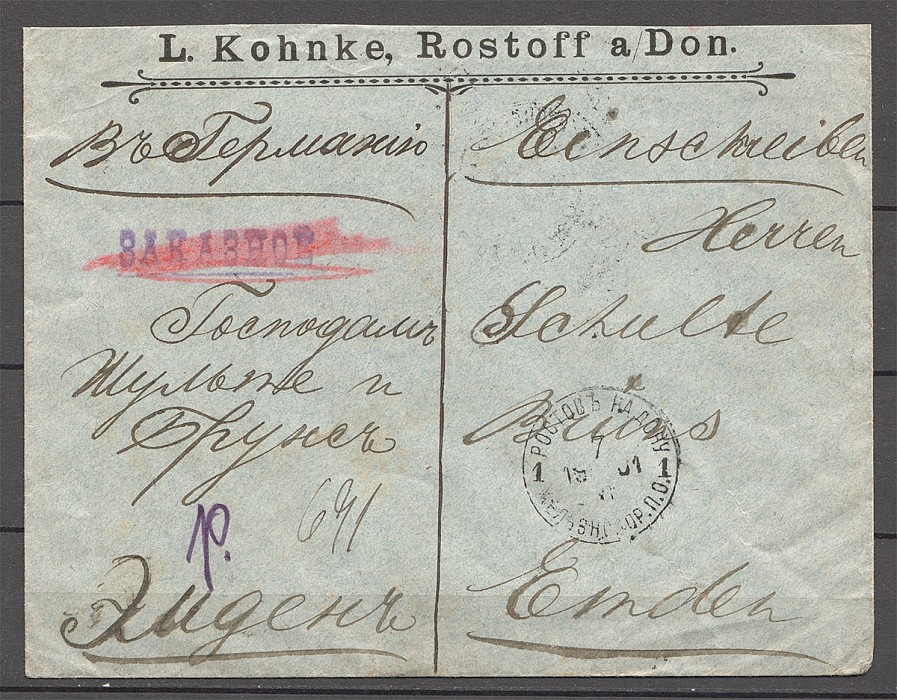 L. Kohnke, Rostoff a/Don.
Въ Германію
ЗАКАЗНОЕ
Господамъ
Шульте и
Брунсъ
р.
641
Эмденъ
Einschreiben
Herren
Schulte
Bruns
РОСТОВЪ НА ДОНУ
1 7 1
19 01
П.О.
Emden